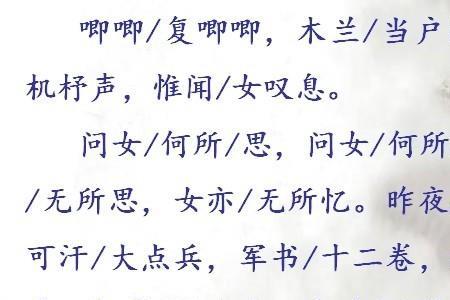 唧唧/复唧唧，木兰/当户
机杼声，惟闻/女叹息。
问女/何所/思，问女/何所
/无所思，女亦/无所忆。昨夜
可汗/大点兵，军书/十二卷，